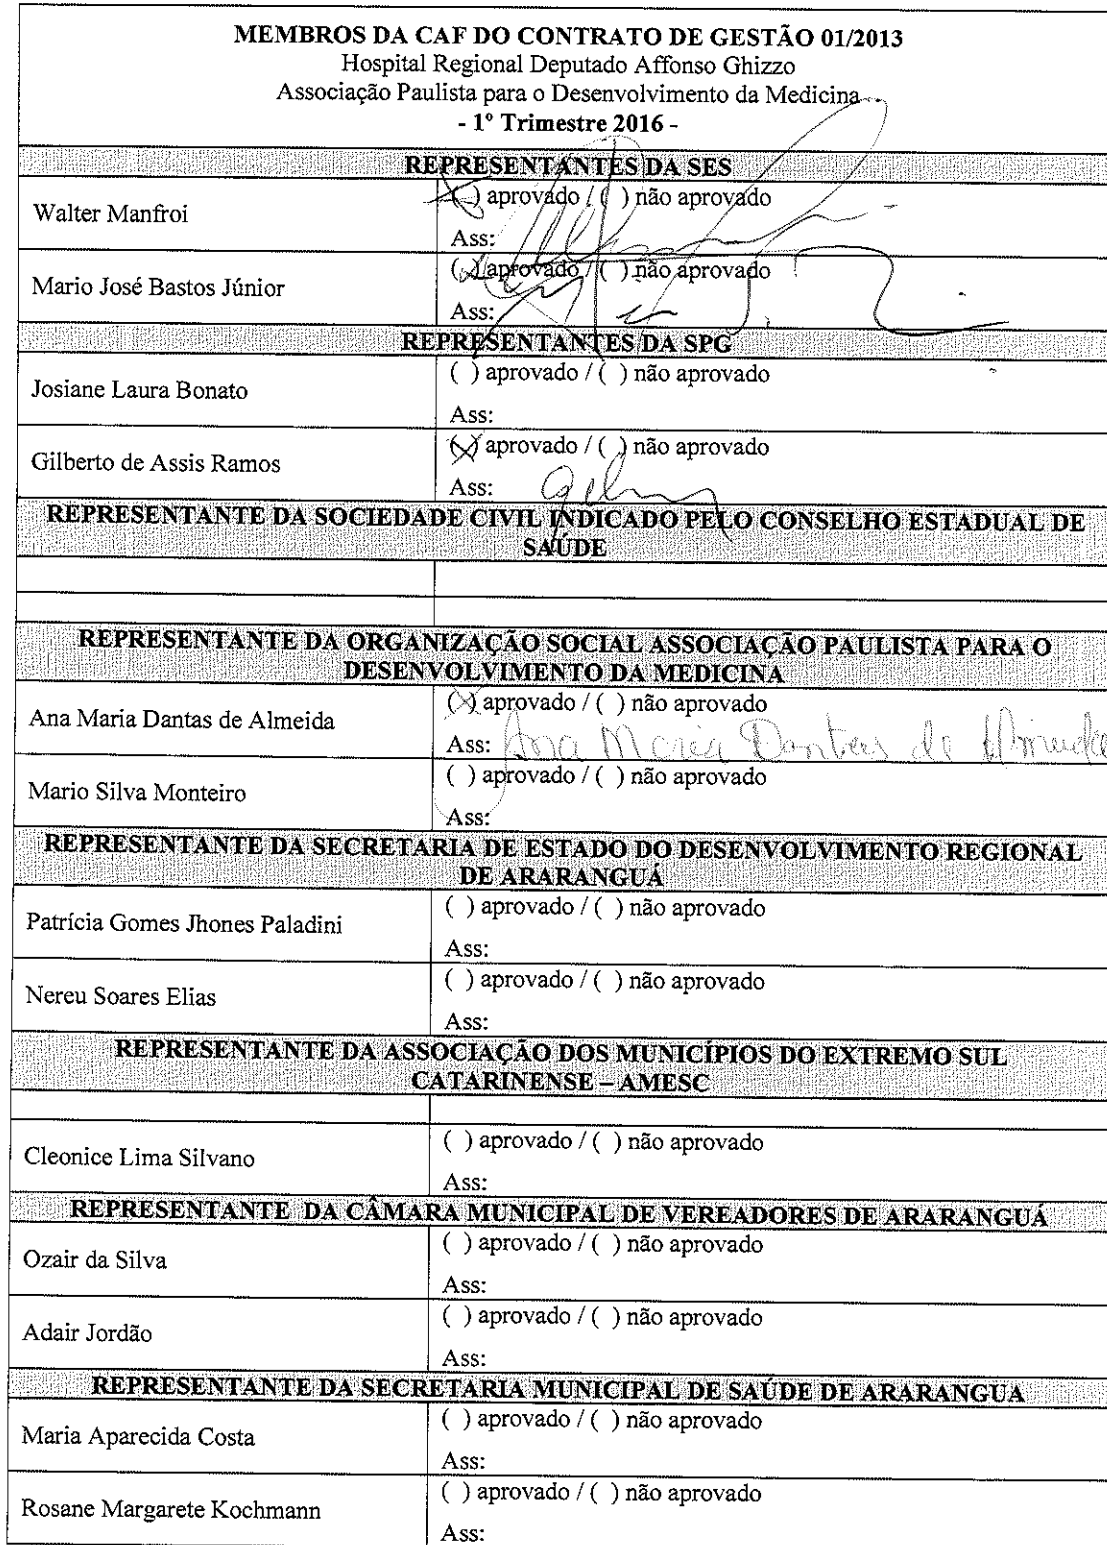 MEMBROS DA CAF DO CONTRATO DE GESTÃO 01/2013
Hospital Regional Deputado Affonso Ghizzo
Associação Paulista para o Desenvolvimento da Medicina
- 1º Trimestre 2016 -
REPRESENTANTES DA SES
Walter Manfroi
(X) aprovado / ( ) não aprovado
Ass:
Mario José Bastos Júnior
(X) aprovado / ( ) não aprovado
Ass:
REPRESENTANTES DA SPG
Josiane Laura Bonato
( ) aprovado / ( ) não aprovado
Ass:
Gilberto de Assis Ramos
(X) aprovado / ( ) não aprovado
Ass:
REPRESENTANTE DA SOCIEDADE CIVIL INDICADO PELO CONSELHO ESTADUAL DE
SAÚDE
REPRESENTANTE DA ORGANIZAÇÃO SOCIAL ASSOCIAÇÃO PAULISTA PARA O
DESENVOLVIMENTO DA MEDICINA
Ana Maria Dantas de Almeida
(X) aprovado / ( ) não aprovado
Ass: Ana Maria Dantas de Almeida
Mario Silva Monteiro
( ) aprovado / ( ) não aprovado
Ass:
REPRESENTANTE DA SECRETARIA DE ESTADO DO DESENVOLVIMENTO REGIONAL
DE ARARANGUÁ
Patrícia Gomes Jhones Paladini
( ) aprovado / ( ) não aprovado
Ass:
Nereu Soares Elias
( ) aprovado / ( ) não aprovado
Ass:
REPRESENTANTE DA ASSOCIAÇÃO DOS MUNICÍPIOS DO EXTREMO SUL
CATARINENSE – AMESC
Cleonice Lima Silvano
( ) aprovado / ( ) não aprovado
Ass:
REPRESENTANTE DA CÂMARA MUNICIPAL DE VEREADORES DE ARARANGUÁ
Ozair da Silva
( ) aprovado / ( ) não aprovado
Ass:
Adair Jordão
( ) aprovado / ( ) não aprovado
Ass:
REPRESENTANTE DA SECRETARIA MUNICIPAL DE SAÚDE DE ARARANGUA
Maria Aparecida Costa
( ) aprovado / ( ) não aprovado
Ass:
Rosane Margarete Kochmann
( ) aprovado / ( ) não aprovado
Ass: